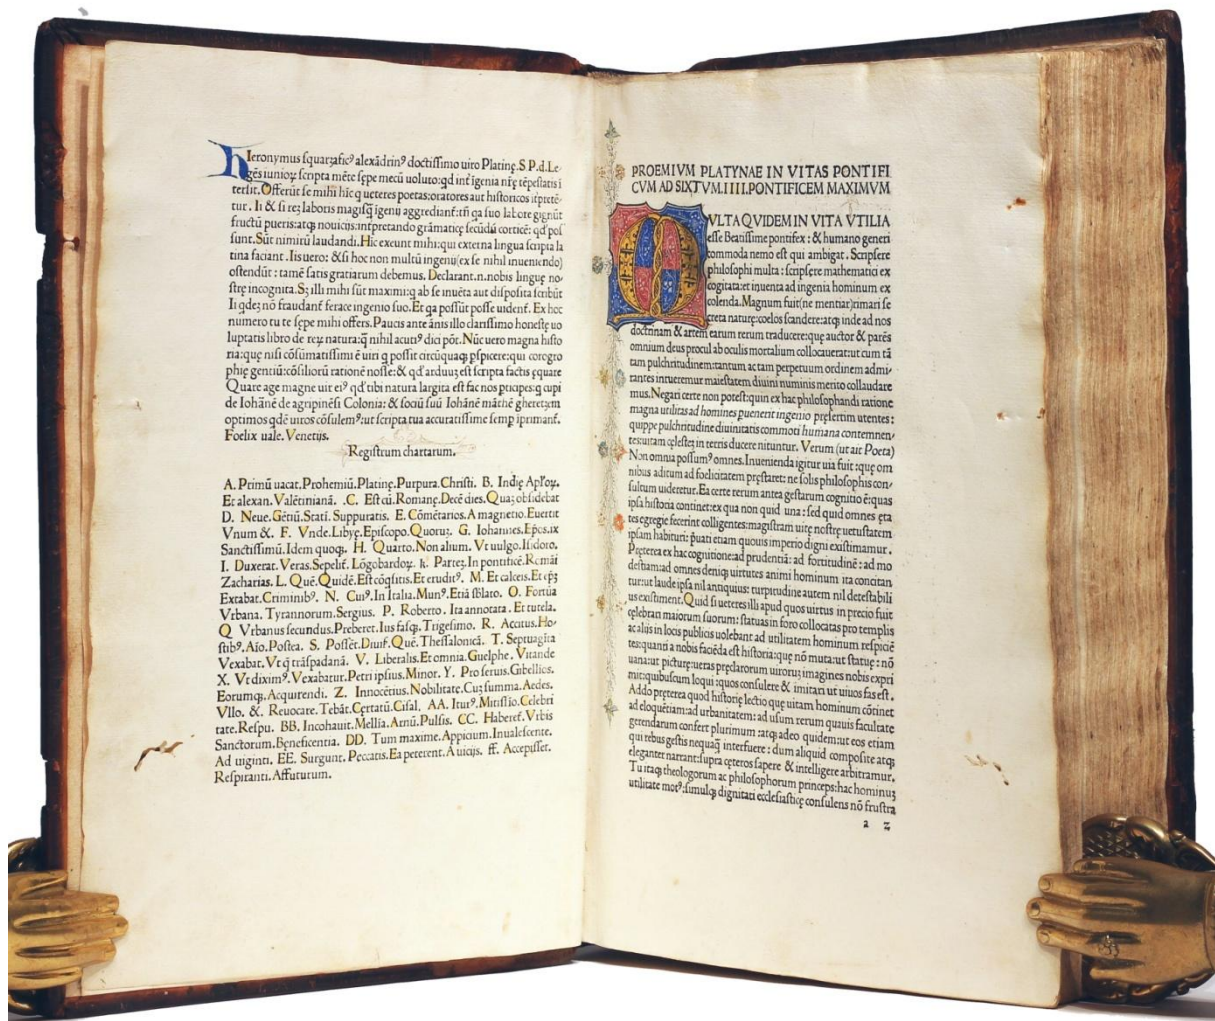 Hieronymus squarzafic⁹ alexādrin⁹ doctissimo uiro Platinę. S P. d. Le-
gēs iunioꝝ scripta mēte sępe mecū uoluto: qd int̄ igenia nr̄ę tēpestatis ī
tersit. Offerūt se mihi hīc q ueteres poetas: oratores aut historicos īt̄pretē-
tur. Ii & si rez laboris magisq̄ igenij aggrediant̄: tn̄ qa suo labore gignūt
fructū pueris: atq; nouicijs: int̄pretando grāmaticę secūdū corticē: qd pos
sunt. Sūt nimirū laudandi. Hic exeunt mihi: qui externa lingua scripta la
tina faciant. Iis uero: & si hoc non multū ingenij (ex se nihil inueniendo)
ostendūt: tamē satis gratiarum debemus. Declarant. n. nobis linguę no-
strę incognita. Sz illi mihi sūt maximi: q ab se inuēta aut disposita scribūt
Ii qdez nō fraudant̄ ferace ingenio suo. Et qa possūt posse uident̄. Ex hoc
numero tu te sępe mihi offers. Paucis ante ānis illo clarissimo honestę uo
luptatis libro de reꝝ natura: q̄ nihil acuti⁹ dici pōt. Nūc uero magna histo
ria: quę nisi cōsūmatissimi ē uiri q possit circūquaq; pspicere: qui corogro
phię gentiū: cōsiliorū rationē nosse: & qd arduuz est scripta factis ęquare
Quare age magne uir ei⁹ qd tibi natura largita est fac nos pticipes: q cupi
de Iohānē de agripinēsi Colonia: & sociū suū Iohānē māthē gheretzem
optimos qdē uiros cōsulem⁹: ut scripta tua accuratissime semp iprimant̄.
Foelix uale. Venetijs.
Registrum chartarum.
A. Primū uacat. Prohemiū. Platinę. Purpura. Christi. B. Indię Apl'oꝝ.
Et alexan. Valētinianā. .C. Est cū. Romanę. Decē dies. Quaz obsidebat
D. Neue. Gētiū. Stati. Suppuratis. E. Cōmētarios. A magnetio. Euertit
Vnum &. F. Vnde. Libyę. Episcopo. Quoruz. G. Iohannes. Ep̄os. ix
Sanctissimū. Idem quoq;. H. Quarto. Non alium. Vt uulgo. Isidoro.
I. Duxerat. Veras. Sepelit̄. Lōgobardoꝝ. k. Partez. In pontificē. Romāi
Zacharias. L. Quē. Quidē. Est cōq̄sitis. Et erudit⁹. M. Et calceis. Et ep̄z
Extabat. Criminib⁹. N. Cui⁹. In Italia. Mun⁹. Etiā sblato. O. Fortūa
Vrbana. Tyrannorum. Sergius. P. Roberto. Ita annotata. Et tutela.
Q Vrbanus secundus. Preberet. Ius fasq;. Trigesimo. R. Accitus. Ho-
stib⁹. Aīo. Postea. S. Possēt. Diuis̄. Quē. Thessalonicā. T. Septuagīta
Vexabat. Vt q̄ trāspadanā. V. Liberalis. Et omnia. Guelphe. Vitande
X. Vt dixim⁹. Vexabatur. Petri ipsius. Minor. Y. Pro seruis. Gibellios.
Eorumq;. Acquirendi. Z. Innocētius. Nobilitate. Cuz summa. Aedes.
Vllo. &. Reuocare. Tebāt. Certatū. Cisal. AA. Itur⁹. Mitissio. Celebri
tate. Respu. BB. Incohauit. Mellia. Arnū. Pulsis. CC. Haberet̄. Vrbis
Sanctorum. Beneficentia. DD. Tum maxime. Appicium. Inualescente.
Ad uiginti. EE. Surgunt. Peccatis. Ea peterent. A uicijs. ff. Accepisset.
Respiranti. Affuturum.
PROEMIVM PLATYNAE IN VITAS PONTIFI
CVM AD SIXTVM. IIII. PONTIFICEM MAXIMVM
MVLTA QVIDEM IN VITA VTILIA
esse Beatissime pontifex: & humano generi
commoda nemo est qui ambigat. Scripsere
philosophi multa: scripsere mathematici ex
cogitata: et inuenta ad ingenia hominum ex
colenda. Magnum fuit (ne mentiar) rimari se
creta naturę: coelos scandere: atq; inde ad nos
doctrinam & artem earum rerum traducere: quę auctor & parēs
omnium deus procul ab oculis mortalium collocauerat: ut cum tā
tam pulchritudinem: tantum ac tam perpetuum ordinem admi-
rantes intueremur maiestatem diuini numinis merito collaudare
mus. Negari certe non potest: quin ex hac philosophandi ratione
magna utilitas ad homines puenerit ingenio pręsertim utentes:
quippe pulchritudine diuinitatis commoti humana contemnen-
tes: uitam cęlestez in terris ducere nituntur. Verum (ut ait Poeta)
Non omnia possum⁹ omnes. Inuenienda igitur uia fuit: quę om
nibus aditum ad foelicitatem pręstaret: ne solis philosophis con-
sultum uideretur. Ea certe rerum antea gestarum cognitio ē: quas
ipsa historia continet: ex qua non quid una: sed quid omnes ęta
tes egregie fecerint colligentes: magistram uitę nostrę uetustatem
ipsam habituri: p̄uati etiam quouis imperio digni existimamur.
Pręterea ex hac cognitione: ad prudentiā: ad fortitudinē: ad mo
destiam: ad omnes deniq; uirtutes animi hominum ita concitan
tur: ut laude ipsa nil antiquius: turpitudine autem nil detestabili
us existiment. Quid si ueteres illi apud quos uirtus in precio fuit
celebran maiorum suorum: statuas in foro collocatas pro templis
ac alijs in locis publicis uolebant ad utilitatem hominum respiciē
tes: quanti a nobis faciēda est historia: quę nō muta: ut statuę: nō
uana: ut picturę: ueras pręclarorum uiroruz imagines nobis expri
mit: quibuscum loqui: quos consulere & imitari ut uiuos fas est.
Addo pręterea quod historię lectio quę uitam hominum cōtinet
ad eloquētiam: ad urbanitatem: ad usum rerum quauis facultate
gerendarum confert plurimum: atq; adeo quidem: ut eos etiam
qui rebus gestis nequaq̄ interfuere: dum aliquid composite atq;
eleganter narrant: supra cęteros sapere & intelligere arbitramur.
Tu itaq; theologorum ac philosophorum princeps: hac hominuz
utilitate mot⁹: simulq; dignitati ecclesiasticę consulens nō frustra
a 2